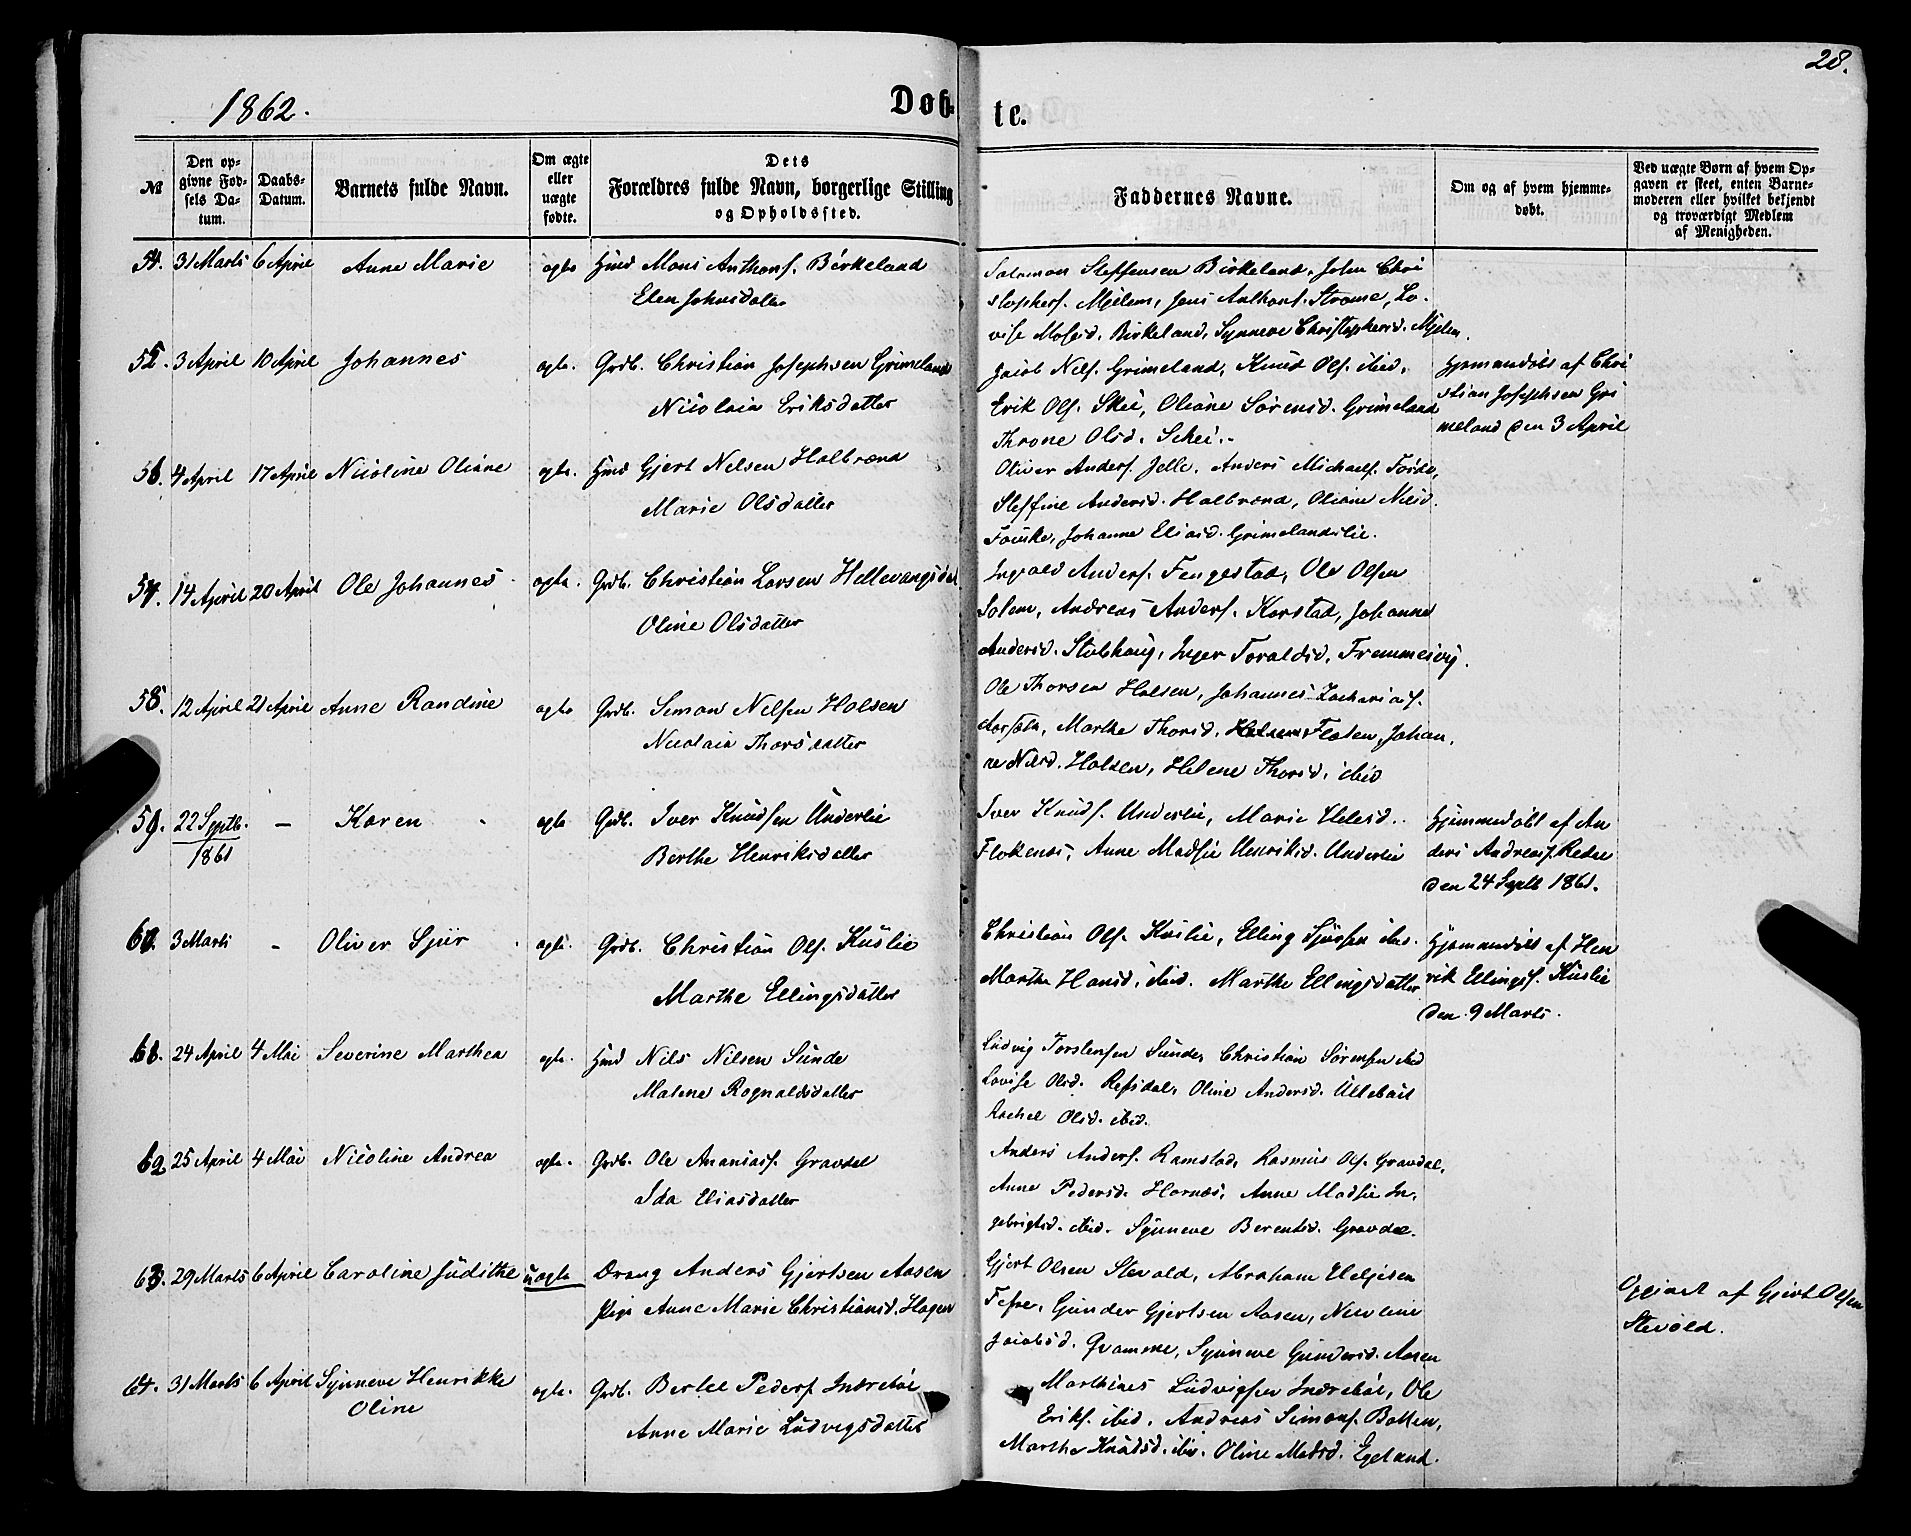 28.
1862.
Døb-
te.
№
Den op-
givne Fød-
sels Da-
tum.
Daabs-
Datum.
Barnets fulde Navn.
Om ægte
eller
uægte
fødte.
Dets
Forældres fulde Navn, borgerlige Stilling
og Opholdssted.
Faddernes Navne.
Om og af hvem hjemme-
døbt.
Ved uægte Børn af hvem Op-
gaven er skeet, enten Barne-
moderen eller hvilket bekjendt
og troværdigt Medlem
af Menigheden.
54. 31 Marts 6 April Anne Marie ægte Hmd Mons Anthons. Birkeland
Elen Johnsdatter
Salomon Steffensen Birkeland, John Chri
stophers. Mjelem, Jens Anthons. Strome, Lo-
vise Mosesd. Birkeland, Synneve Christophersd. Mjelem.
55. 3 April 10 April Johannes ægte. Grdb. Christian Josephsen Grimeland
Nicolaia Eriksdatter
Jacob Nels. Grimeland, Knud Ols. ibid,
Erik Ols. Skei, Oliane Sørensd. Grimeland
Throne Olsd. Schei.
Hjemmedøbt af Chri
stian Josephsen Gri
meland den 3 April
56. 4 April 17 April Nicoline Oliane ægte. Hmd Gjert Nelsen Halbrænd
Marie Olsdatter
Oliver Anders. Jelle, Anders Michaels. Førde,
Steffine Andersd. Halbrænd, Oliane Nelsd.
Fauske, Johanne Eliasd. Grimelandslie.
57. 14 April 20 April Ole Johannes ægte. Grdb. Christian Larsen Hellevangsdal
Oline Olsdatter
Ingvald Anders. Fengestad, Ole Olsen
Solem, Andreas Anders. Korstad, Johanne
Andersd. Stubhaug, Inger Toraldsd. Fremmesvig.
58. 12 April 21 April Anne Randine ægte Grdb. Simon Nelsen Holsen
Nicolaia Thorsdatter
Ole Thorsen Holsen, Johannes Zacharias.
Aarsæth, Marthe Thorsd. Flaten, Johan,
ne Nelsd. Holsen, Helene Thorsd, ibid
59. 22 Septb. – Karen ægte Grdb. Iver Knudsen Underlie
1861
Berthe Henriksdatter
Iver Knuds. Underlie, Marie Helesd.
Flokenæs, Anne Madsie Henriksd. Underlie
Hjemmedøbt af An
ders Andreas. Redal
den 24 Septb 1861.
60. 3 Marts - Oliver Sjur ægte. Grdb. Christian Ols. Kuslie
Marthe Ellingsdatter
Christian Ols. Kuslie, Elling Sjursen ibid.
Marthe Hansd. ibid. Marthe Ellingsdatter
Hjemmedøbt af Hen
rik Ellings. Kuslie
den 9 Marts.
61. 24 April 4 Mai Severine Marthea ægte. Hmd Nils Nilsen Sunde
Malene Rognaldsdatter
Ludvig Torstensen Sunde, Christian Sørensen ibid
Lovise Olsd. Refsdal, Oline Andersd. Ullebust
Rachel Olsd. ibid.
62 25 April 4 Mai Nicoline Andrea ægte. Grdb. Ole Ananias. Gravdal
Ida Eliasdatter
Anders Anders. Ramstad, Rasmus Ols. Gravdal,
Anne Pedersd. Hornæs, Anne Madsie In,
gebrigtsd. ibid. Synneve Berentsd. Gravdal.
63. 29 Marts 6 April Caroline Judithe uægte Dreng Anders Gjertsen Aasen
Pige Anne Marie Christiansd. Hagen
Gjert Olsen Stevold, Abraham Helgesen
Tefre, Gunder Gjertsen Aasen, Nicoline
Jacobsd. Qvamme, Synneve Gundersd. Aasen
Opgivet af Gjert Olsen
Stevold.
64. 31 Marts 6 April Synneve Henrikke ægte. Grdb. Bertel Peders Indrebøe
Oline
Anne Marie Ludvigsdatter
Marthines Ludvigsen Indrebøe, Ole
Eriks. ibid, Andreas Simons. Botten,
Marthe Knudsd. ibid. Oline Madsd. Egeland.